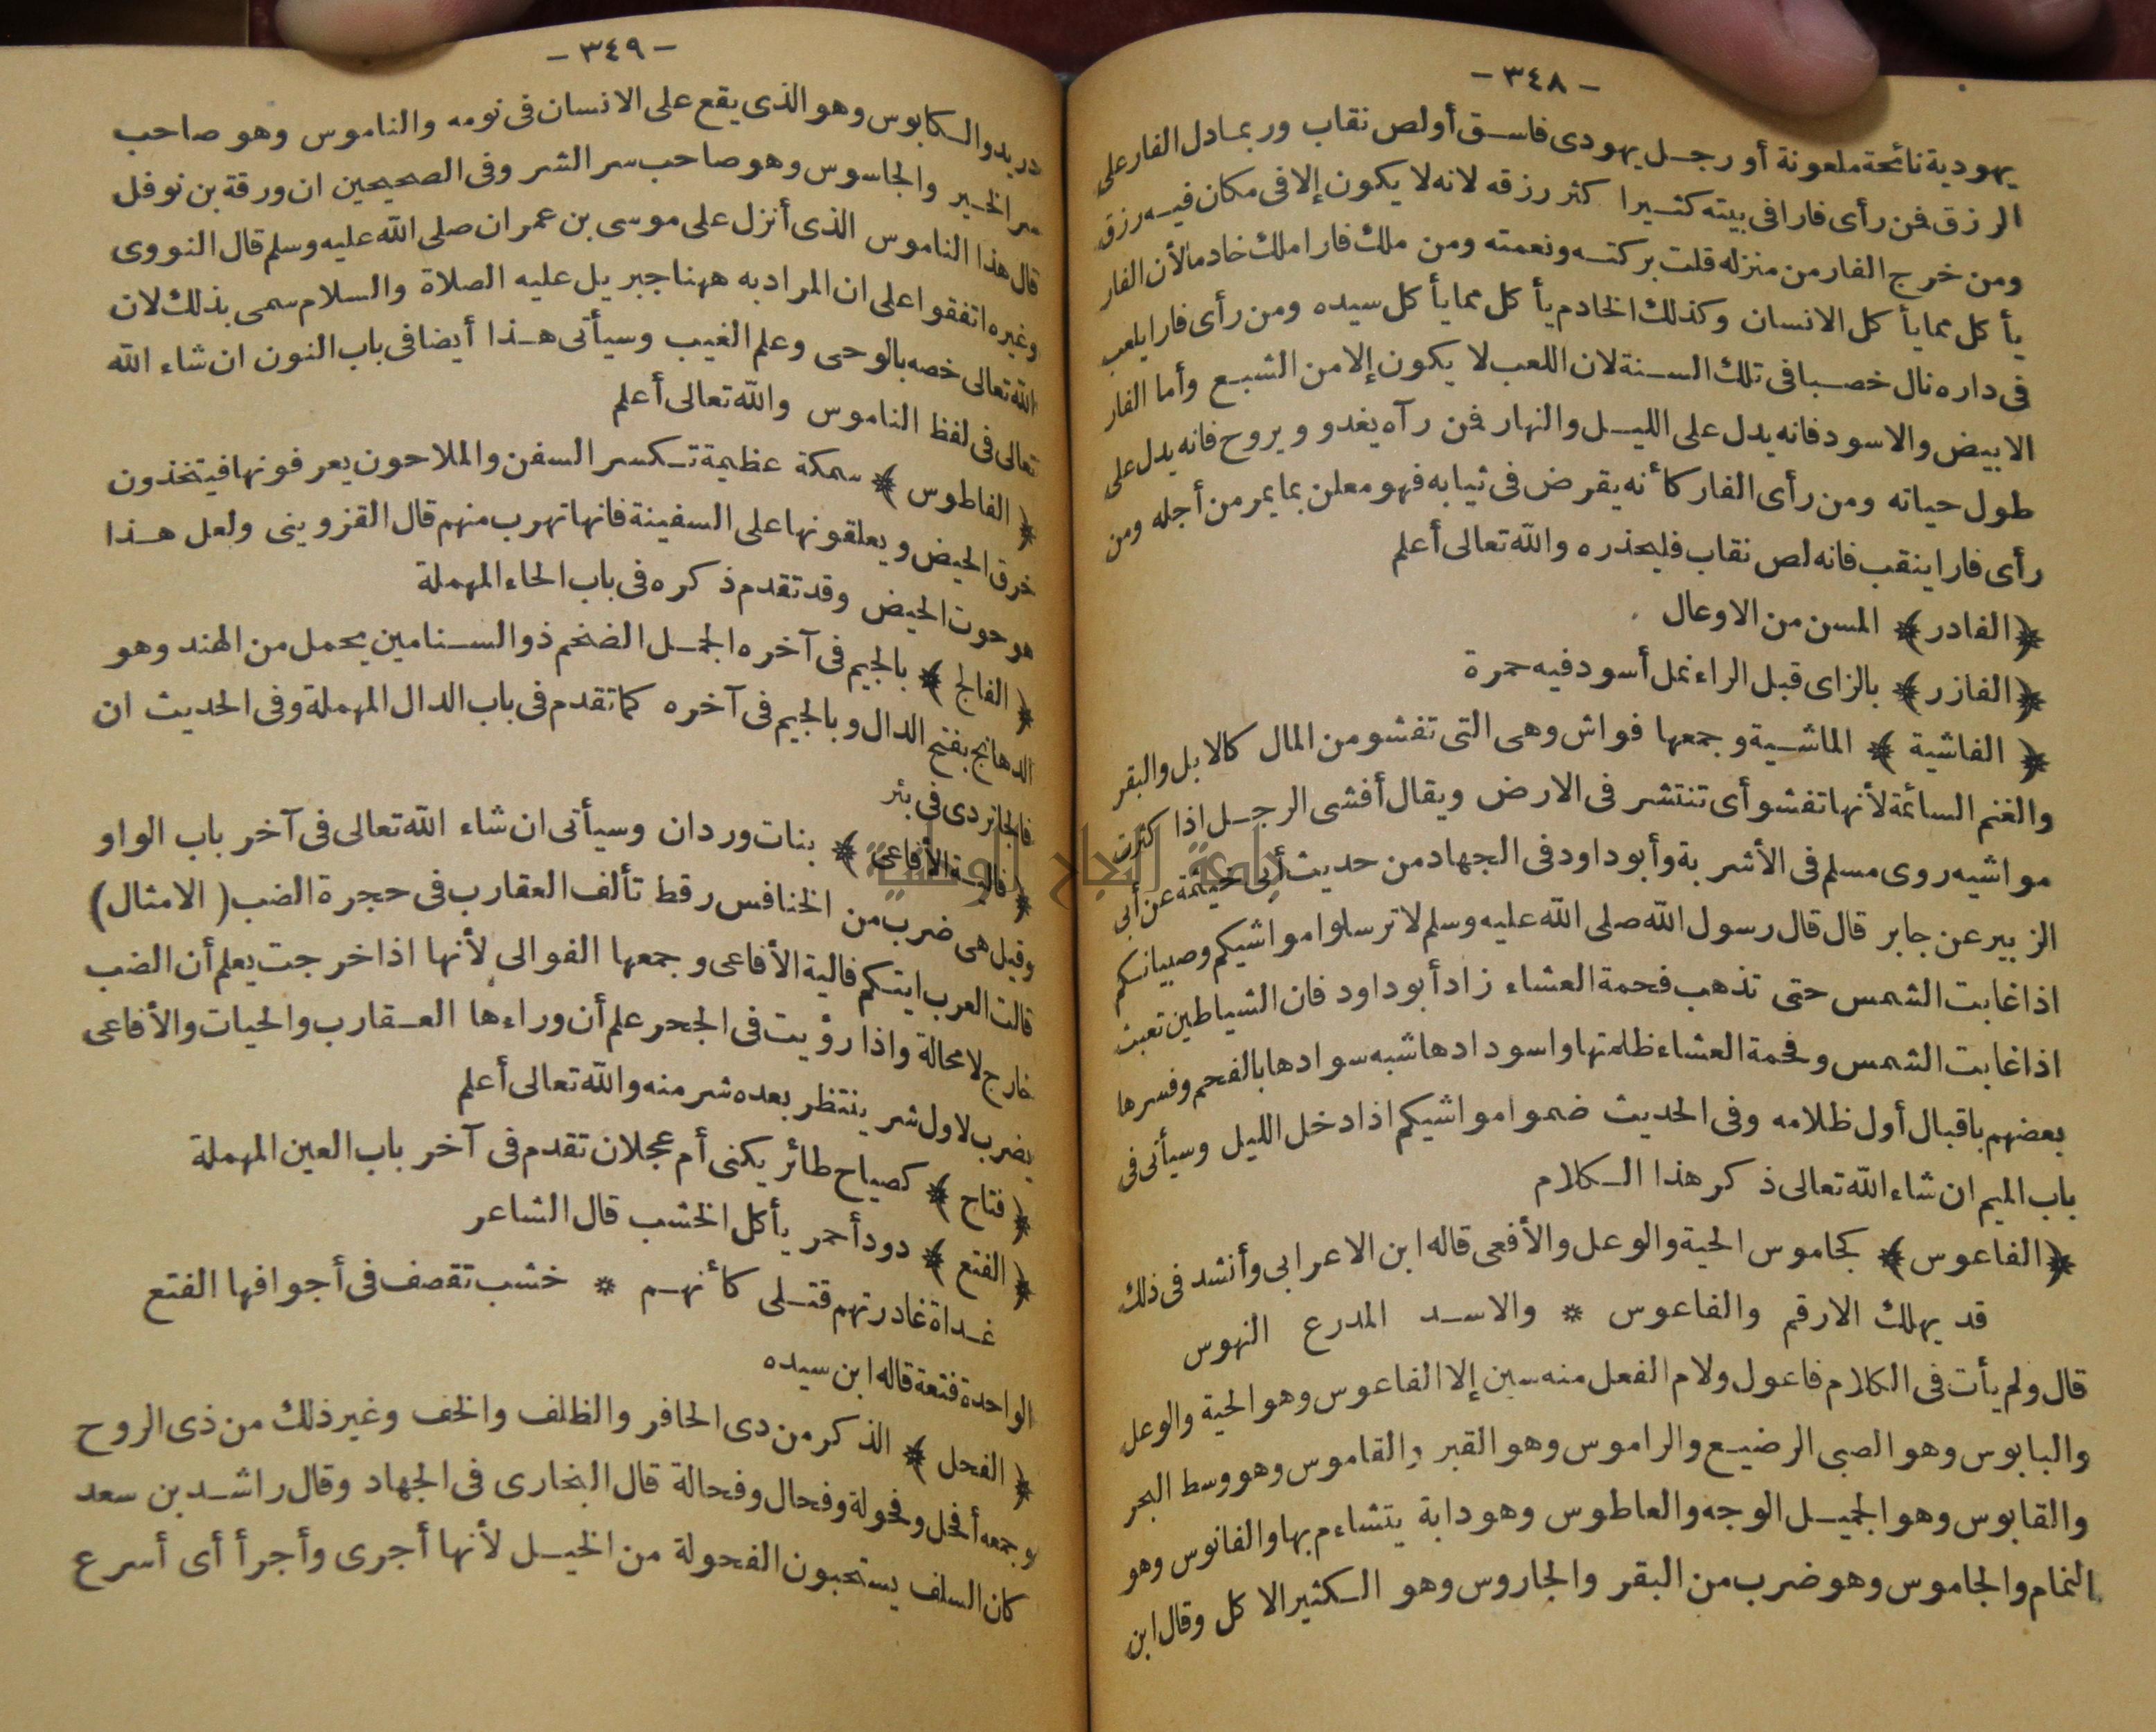 - ٣٤٨ -
يهودية نائحة ملعونة أو رجل يهودى فاسق أو لص نقاب وربما دل الفار على
الرزق فمن رأى فارا فى بيته كثيرا كثر رزقه لانه لا يكون إلا فى مكان فيه رزق
ومن خرج الفار من منزله قلت بركته ونعمته ومن ملك فارا ملك خادما لأن الفار
يأكل مما يأكل الانسان وكذلك الخادم يأكل مما يأكل سيده ومن رأى فارا يلعب
فى داره نال خصبا فى تلك السنة لان اللعب لا يكون إلا من الشبع وأما الفار
الابيض والاسود فانه يدل على الليل والنهار فمن رآه يغدو ويروح فانه يدل على
طول حياته ومن رأى الفار كأنه يقرض فى ثيابه فهو معلن بما يمر من أجله ومن
رأى فارا ينقب فانه لص نقاب فليحذره والله تعالى أعلم
﴿ الفادر ﴾ المسن من الاوعال
﴿ الفازر ﴾ بالزاى قبل الراء نمل أسود فيه حمرة
﴿ الفاشية ﴾ الماشية وجمعها فواش وهى التى تفشو من المال كالابل والبقر
والغنم السائمة لأنها تفشو أى تنتشر فى الارض ويقال أفشى الرجل اذا كثرت
مواشيه روى مسلم فى الأشربة وأبو داود فى الجهاد من حديث أبى خيثمة عن أبى
الزبير عن جابر قال قال رسول الله صلى الله عليه وسلم لا ترسلوا مواشيكم وصبيانكم
اذا غابت الشمس حتى تذهب فحمة العشاء زاد أبو داود فان الشياطين تعبث
اذا غابت الشمس وفحمة العشاء ظلمتها واسودادها شبه سوادها بالفحم وفسرها
بعضهم باقبال أول ظلامه وفى الحديث ضموا مواشيكم اذا دخل الليل وسيأتى فى
باب الميم ان شاء الله تعالى ذكر هذا الكلام
﴿ الفاعوس ﴾ كجاموس الحية والوعل والأفعى قاله ابن الاعرابى وأنشد فى ذلك
قد يهلك الارقم والفاعوس * والاسد المدرع النهوس
قال ولم يأت فى الكلام فاعول ولام الفعل منه سين إلا الفاعوس وهو الحية والوعل
والبابوس وهو الصبى الرضيع والراموس وهو القبر والقاموس وهو وسط البحر
والقابوس وهو الجميل الوجه والعاطوس وهو دابة يتشاءم بها والفانوس وهو
النمام والجاموس وهو ضرب من البقر والجاروس وهو الكثير الاكل وقال ابن
- ٣٤٩ -
دريد والكابوس وهو الذى يقع على الانسان فى نومه والناموس وهو صاحب
سر الخير والجاسوس وهو صاحب سر الشر وفى الصحيحين ان ورقة بن نوفل
قال هذا الناموس الذى أنزل على موسى بن عمران صلى الله عليه وسلم قال النووى
وغيره اتفقوا على ان المراد به ههنا جبريل عليه الصلاة والسلام سمى بذلك لان
الله تعالى خصه بالوحى وعلم الغيب وسيأتى هذا أيضا فى باب النون ان شاء الله
تعالى فى لفظ الناموس والله تعالى أعلم
﴿ الفاطوس ﴾ سمكة عظيمة تكسر السفن والملاحون يعرفونها فيتخذون
خرق الحيض ويعلقونها على السفينة فانها تهرب منهم قال القزوينى ولعل هذا
هو حوت الحيض وقد تقدم ذكره فى باب الحاء المهملة
﴿ الفالج ﴾ بالجيم فى آخره الجمل الضخم ذو السنامين يحمل من الهند وهو
الدهانج بفتح الدال وبالجيم فى آخره كما تقدم فى باب الدال المهملة وفى الحديث ان
فالجا تردى فى بئر
﴿ فالية الأفاعى ﴾ بنات وردان وسيأتى ان شاء الله تعالى فى آخر باب الواو
وقيل هى ضرب من الخنافس رقط تألف العقارب فى حجرة الضب ( الامثال )
قالت العرب ايتكم فالية الأفاعى وجمعها الفوالى لأنها اذا خرجت يعلم أن الضب
خارج لا محالة واذا رؤيت فى الجحر علم أن وراءها العقارب والحيات والأفاعى
يضرب لاول شر ينتظر بعده شر منه والله تعالى أعلم
﴿ فتاح ﴾ كصياح طائر يكنى أم عجلان تقدم فى آخر باب العين المهملة
﴿ الفتع ﴾ دود أحمر يأكل الخشب قال الشاعر
غداة غادرتهم قتلى كأنهم * خشب تقصف فى أجوافها الفتع
الواحدة فتعة قاله ابن سيده
﴿ الفحل ﴾ الذكر من ذى الحافر والظلف والخف وغير ذلك من ذى الروح
وجمعه أفحل وفحولة وفحال وفحالة قال البخارى فى الجهاد وقال راشد بن سعد
كان السلف يستحبون الفحولة من الخيل لأنها أجرى وأجرأ أى أسرع
جامعة النجاح الوطنية